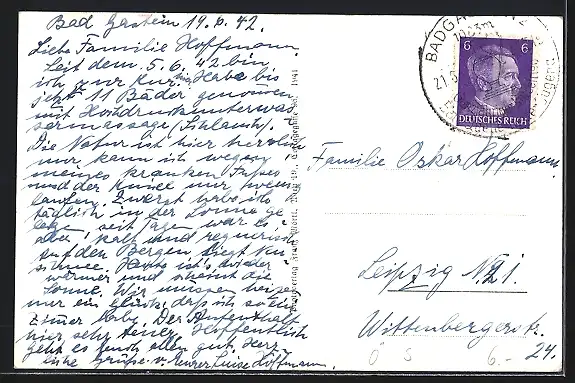 Bad Gastein 19.6.42.
Liebe Familie Hoffmann
Seit dem 5.6.42 bin
ich zur Kur hier. Habe bis
jetzt 11 Bäder genommen
mit Hochdruckunterwas-
sermassage (Schlauch).
Die Natur ist hier herrlich
nur kann ich wegen
meines kranken Fusses
und der Knie nur wenig
laufen. Zuerst habe ich
täglich in der Sonne ge-
legen, seit Tagen war es
aber kalt und regnerisch
auf den Bergen liegt Neu-
schnee. Heute ist's wieder
wärmer und scheint die
Sonne. Wir müssen heizen
nur ein Glück, daß ich so ein
Zimmer habe. Der Aufenthalt
hier sehr teuer. Hoffentlich
geht es Euch allen gut. Herz-
liche Grüße v. Eurer Luise Hoffmann.
BADGASTEIN
1083m
21.6
6 6
DEUTSCHES REICH
Familie Oskar Hoffmann
Leipzig N 21.
Wittenbergerstr.
24.
Ö S 6.-